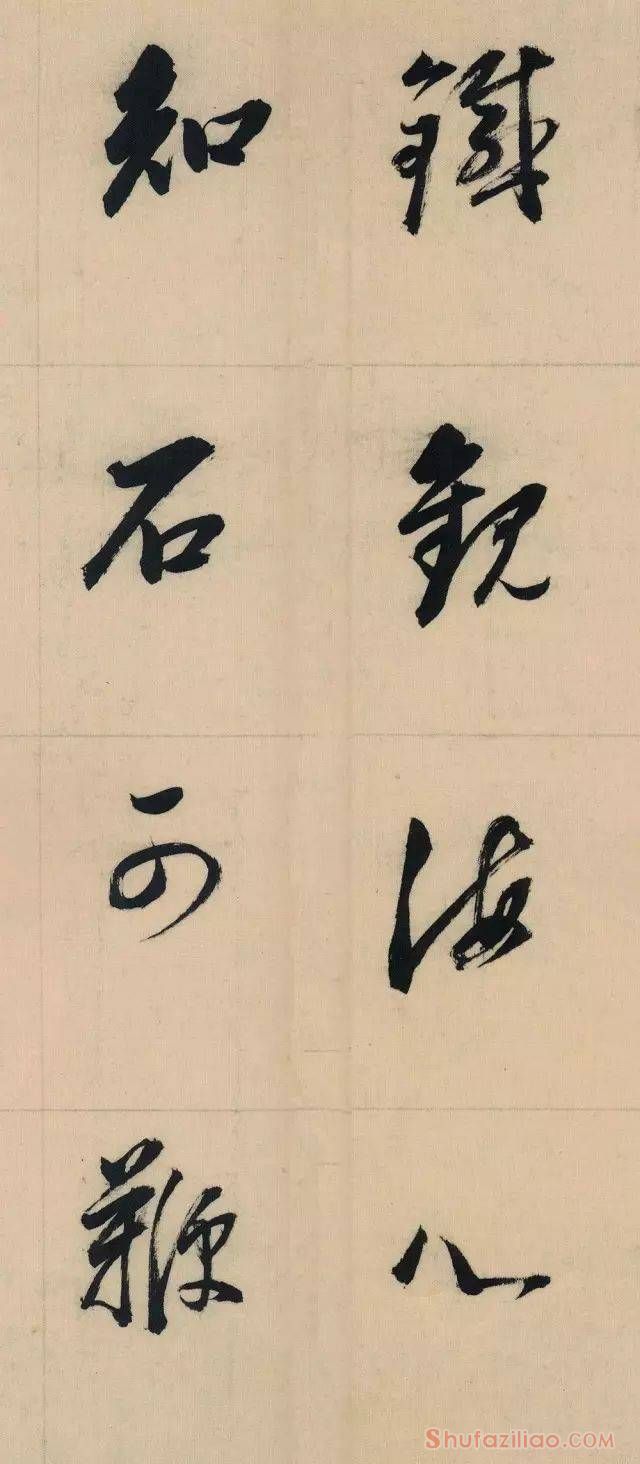 鐵觀海人
知石可鞭
Shufaziliao.COM